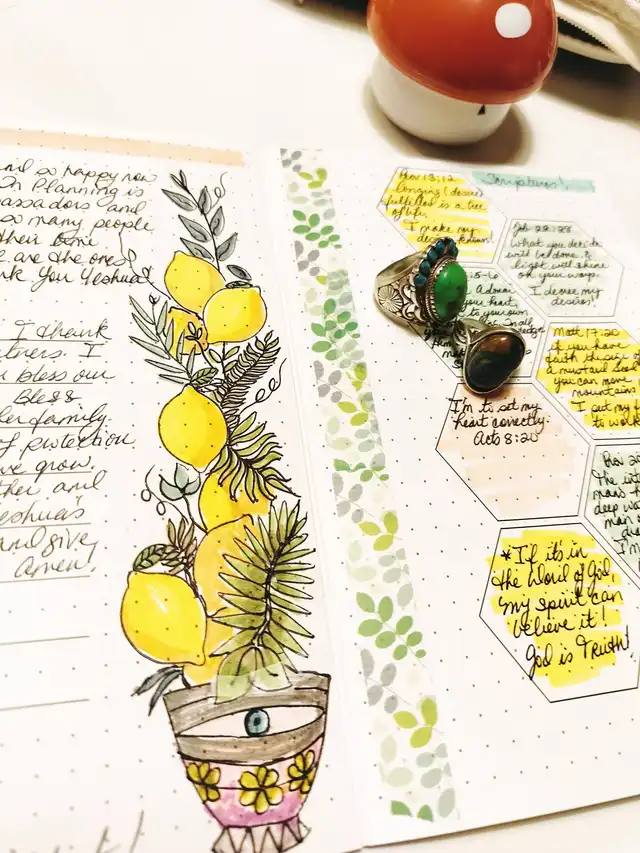 nd so happy now
In Planning is
assadors and
so many people
their time
e are the ones
nk you Yeshua!
I thank
tners. I
u bless our
Bless
ler family.
of protection
ve grow.
ther and
eshua's
and give
Amen.
Scriptures!
Prov 13:12
longing (desire)
fulfilled is a tree
of life.
I make my
Job 22:28
What you decide
will be done, &
light will shine
on your ways.
I decree my
desires!
5-6
your heart
to your own
Matt 17:20
if you have
faith the size of
a mustard seed
you can move
mountains
I put my
to work
I'm to set my
heart correctly.
Acts 8:20
Prov 20
The int
man's h
deep wa
man
I'm
*If it's in
the Word of God,
my spirit can
believe it!
God is Truth!